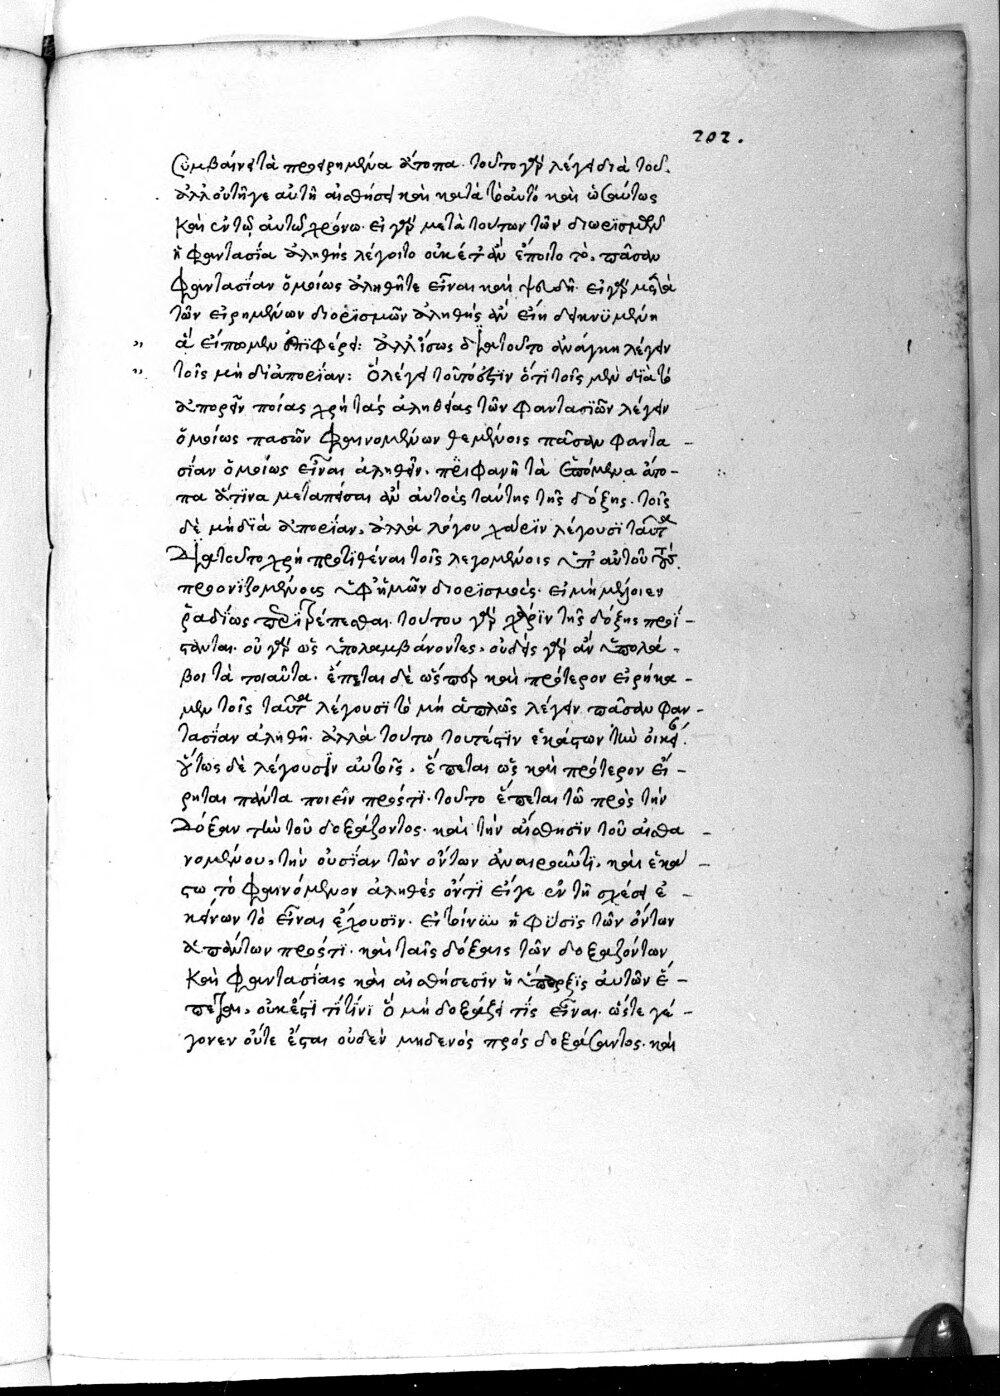 202.
συμβαίνει τὰ προειρημένα ἄτοπα. τοῦτο γὰρ λέγει διὰ τοῦ.
ἀλλ' οὔτι γε αὐτῇ αἰσθήσει καὶ κατὰ τὸ αὐτὸ καὶ ὡσαύτως
καὶ ἐν τῷ αὐτῷ χρόνῳ. εἰ γὰρ μετὰ τούτων τῶν διωρισμένων
ἡ φαντασία ἀληθὴς λέγοιτο οὐκέτ' ἂν ἕποιτο τὸ, πᾶσαν
φαντασίαν ὁμοίως ἀληθῆ τε εἶναι καὶ ψευδῆ. εἰ γὰρ μετὰ
τῶν εἰρημένων διορισμῶν ἀληθὴς ἂν εἴη δεικνυμένη
ἃ εἴπομεν ἐπιφέρει: ἀλλ' ἴσως διὰ τοῦτο ἀνάγκη λέγειν
τοῖς μὴ δι' ἀπορίαν: ὃ λέγει τοῦτό ἐστιν ὅτι τοῖς μὲν διὰ τὸ
ἀπορεῖν ποίας χρὴ τὰς ἀληθείας τῶν φαντασιῶν λέγειν
ὁμοίως πασῶν φαινομένων θεμένοις πᾶσαν φαντα -
σίαν ὁμοίως εἶναι ἀληθῆ. περιφανῆ τὰ ἑπόμενα ἄτο -
πα ἅτινα μεταπείσαι ἂν αὐτοὺς ταύτης τῆς δόξης. τοῖς
δὲ μὴ διὰ ἀπορίαν, ἀλλὰ λόγου χάριν λέγουσι ταῦτα
διὰ τοῦτο χρὴ προστιθέναι τοῖς λεγομένοις ὑπ' αὐτοῦ τοὺς
προονιζομένους ὑφ' ἡμῶν διορισμούς. εἰ μὴ μέλλοιεν
ῥᾳδίως περιτρέπεσθαι. τούτου γὰρ χάριν τῆς δόξης προΐ -
στανται. οὐ γὰρ ὡς ὑπολαμβάνοντες, οὐδεὶς γὰρ ἂν ὑπολά -
βοι τὰ τοιαῦτα. ἕπεται δὲ ὥσπερ καὶ πρότερον εἰρήκα -
μεν τοῖς ταῦτα λέγουσι τὸ μὴ ἁπλῶς λέγειν πᾶσαν φαν -
τασίαν ἀληθῆ. ἀλλὰ τούτῳ τουτέστιν ἑκάστων τῶν οἰκεί.
οὕτως δὲ λέγουσιν αὐτοῖς, ἕπεται ὡς καὶ πρότερον εἴ -
ρηται πάντα ποιεῖν πρός τι. τοῦτο ἕπεται τῷ πρὸς τὴν
δόξαν τὴν τοῦ δοξάζοντος. καὶ τὴν αἴσθησιν τοῦ αἰσθα -
νομένου, τὴν οὐσίαν τῶν ὄντων ἀναιροῦντι. καὶ ἑκά -
στῳ τὸ φαινόμενον ἀληθὲς ὄντι εἴγε ἐν τῇ σχέσει ἐ -
κείνων τὸ εἶναι ἔχουσιν. εἰ τοίνυν ἡ φύσις τῶν ὄντων
ἁπάντων πρός τι. καὶ ταῖς δόξαις τῶν δοξαζόντων
καὶ φαντασίαις καὶ αἰσθήσεσιν ἡ ὕπαρξις αὐτῶν ἕ -
πεται, οὐκ ἔστι τί τινι ὃ μὴ δοξάζει τις εἶναι. ὥστε γέ -
γονεν οὔτε ἔσται οὐδὲν μηδενὸς πρὸς δοξάσαντος. καὶ